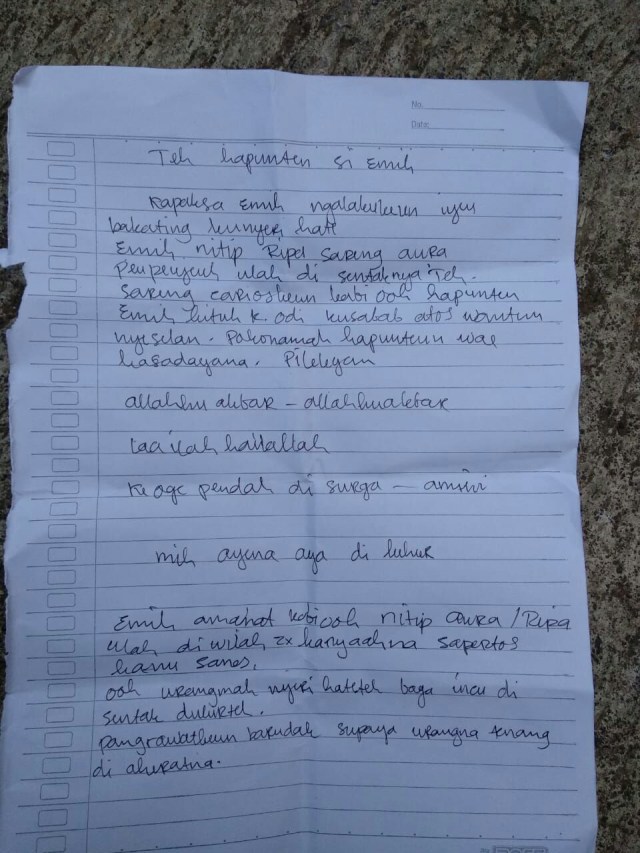 No.
Date:
Teh hapunten si Emih
Kapaksa Emih ngalakukeun iyeu
bakating kunyeri hate
Emih nitip Ripa sareng aura
Penpenjeuh ulah di sentaknya Teh.
Sareng carioskeun ka bi ooh hapunten
Emih kituh k odi kusabab atos wantun
nyeselan. Pokonamah hapunteun wae
kasadayana. Pileleyan
allahhu akbar - allahhuakbar
laa ilah hailallah
Ke oge pendak di surga - amiin
mih ayena aya di luhur
Emih amanat ka bi ooh nitip aura / Ripa
ulah di wilah 2x kanyaahna sapertos
kanu sanes.
ooh urangmah nyeri hateteh baga incu di
sentak dulurteh.
pangrawatkeun barudak supaya urangna tenang
di aheratna.